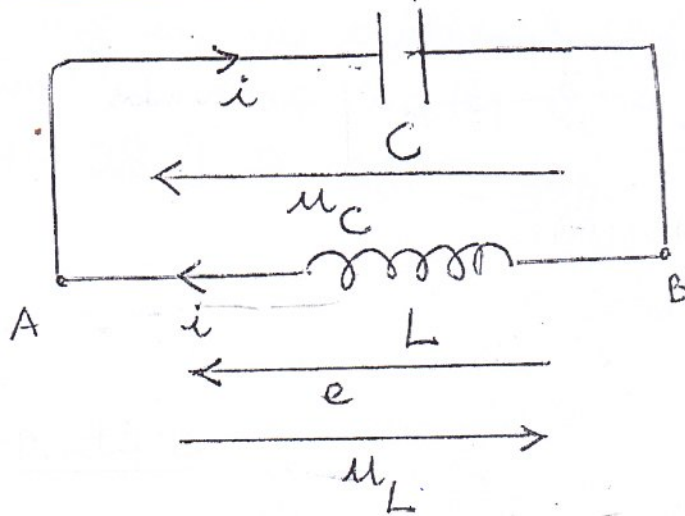 i
C
u_C
A
B
i
L
e
u_L